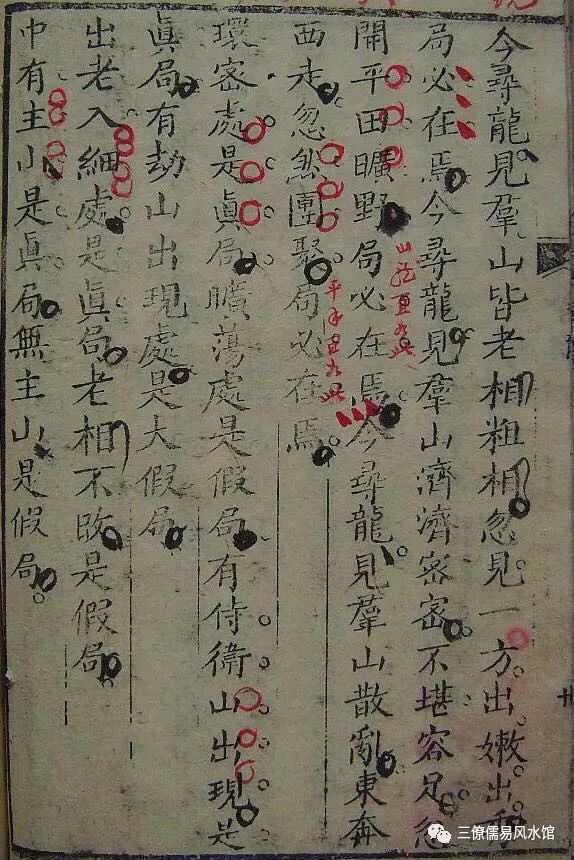 今尋龍見羣山皆老相粗相忽見一方出嫩出
局必在焉今尋龍見羣山濟濟密密不堪容足忽
開平田曠野局必在焉今尋龍見羣山散亂東奔
西走忽然團聚局必在焉
環密處是眞局曠蕩處是假局有侍衛山出現是
眞局有劫山出現處是大假局
出老入細處是眞局老相不改是假局
中有主山是眞局無主山是假局
三僚儒易风水馆